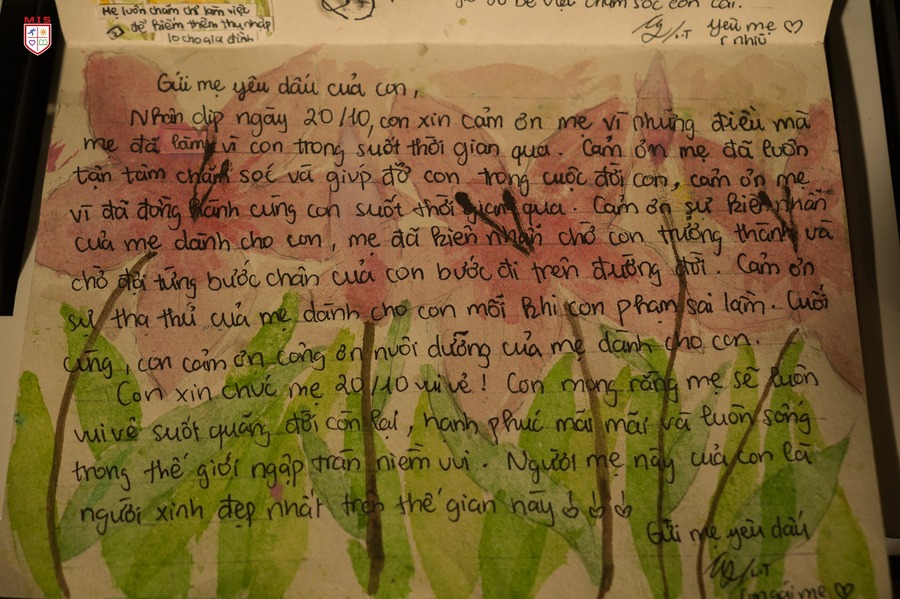 MIS
Mẹ luôn chăm chỉ làm việc
để kiếm thêm thu nhập
lo cho gia đình!
việc chăm sóc con cái.
yêu mẹ ♡
nhiều
Gửi mẹ yêu dấu của con,
Nhân dịp ngày 20/10, con xin cảm ơn mẹ vì những điều mà
mẹ đã làm vì con trong suốt thời gian qua. Cảm ơn mẹ đã luôn
tận tâm chăm sóc và giúp đỡ con trong cuộc đời con, cảm ơn mẹ
vì đã đồng hành cùng con suốt thời gian qua. Cảm ơn sự kiên nhẫn
của mẹ dành cho con, mẹ đã kiên nhẫn chờ con trưởng thành và
chờ đợi từng bước chân của con bước đi trên đường đời. Cảm ơn
sự tha thứ của mẹ dành cho con mỗi khi con phạm sai lầm. Cuối
cùng, con cảm ơn công ơn nuôi dưỡng của mẹ dành cho con.
Con xin chúc mẹ 20/10 vui vẻ! Con mong rằng mẹ sẽ luôn
vui vẻ suốt quãng đời còn lại, hạnh phúc mãi mãi và luôn sống
trong thế giới ngập tràn niềm vui. Người mẹ này của con là
người xinh đẹp nhất trên thế gian này
Gửi mẹ yêu dấu
Con gái mẹ ♡